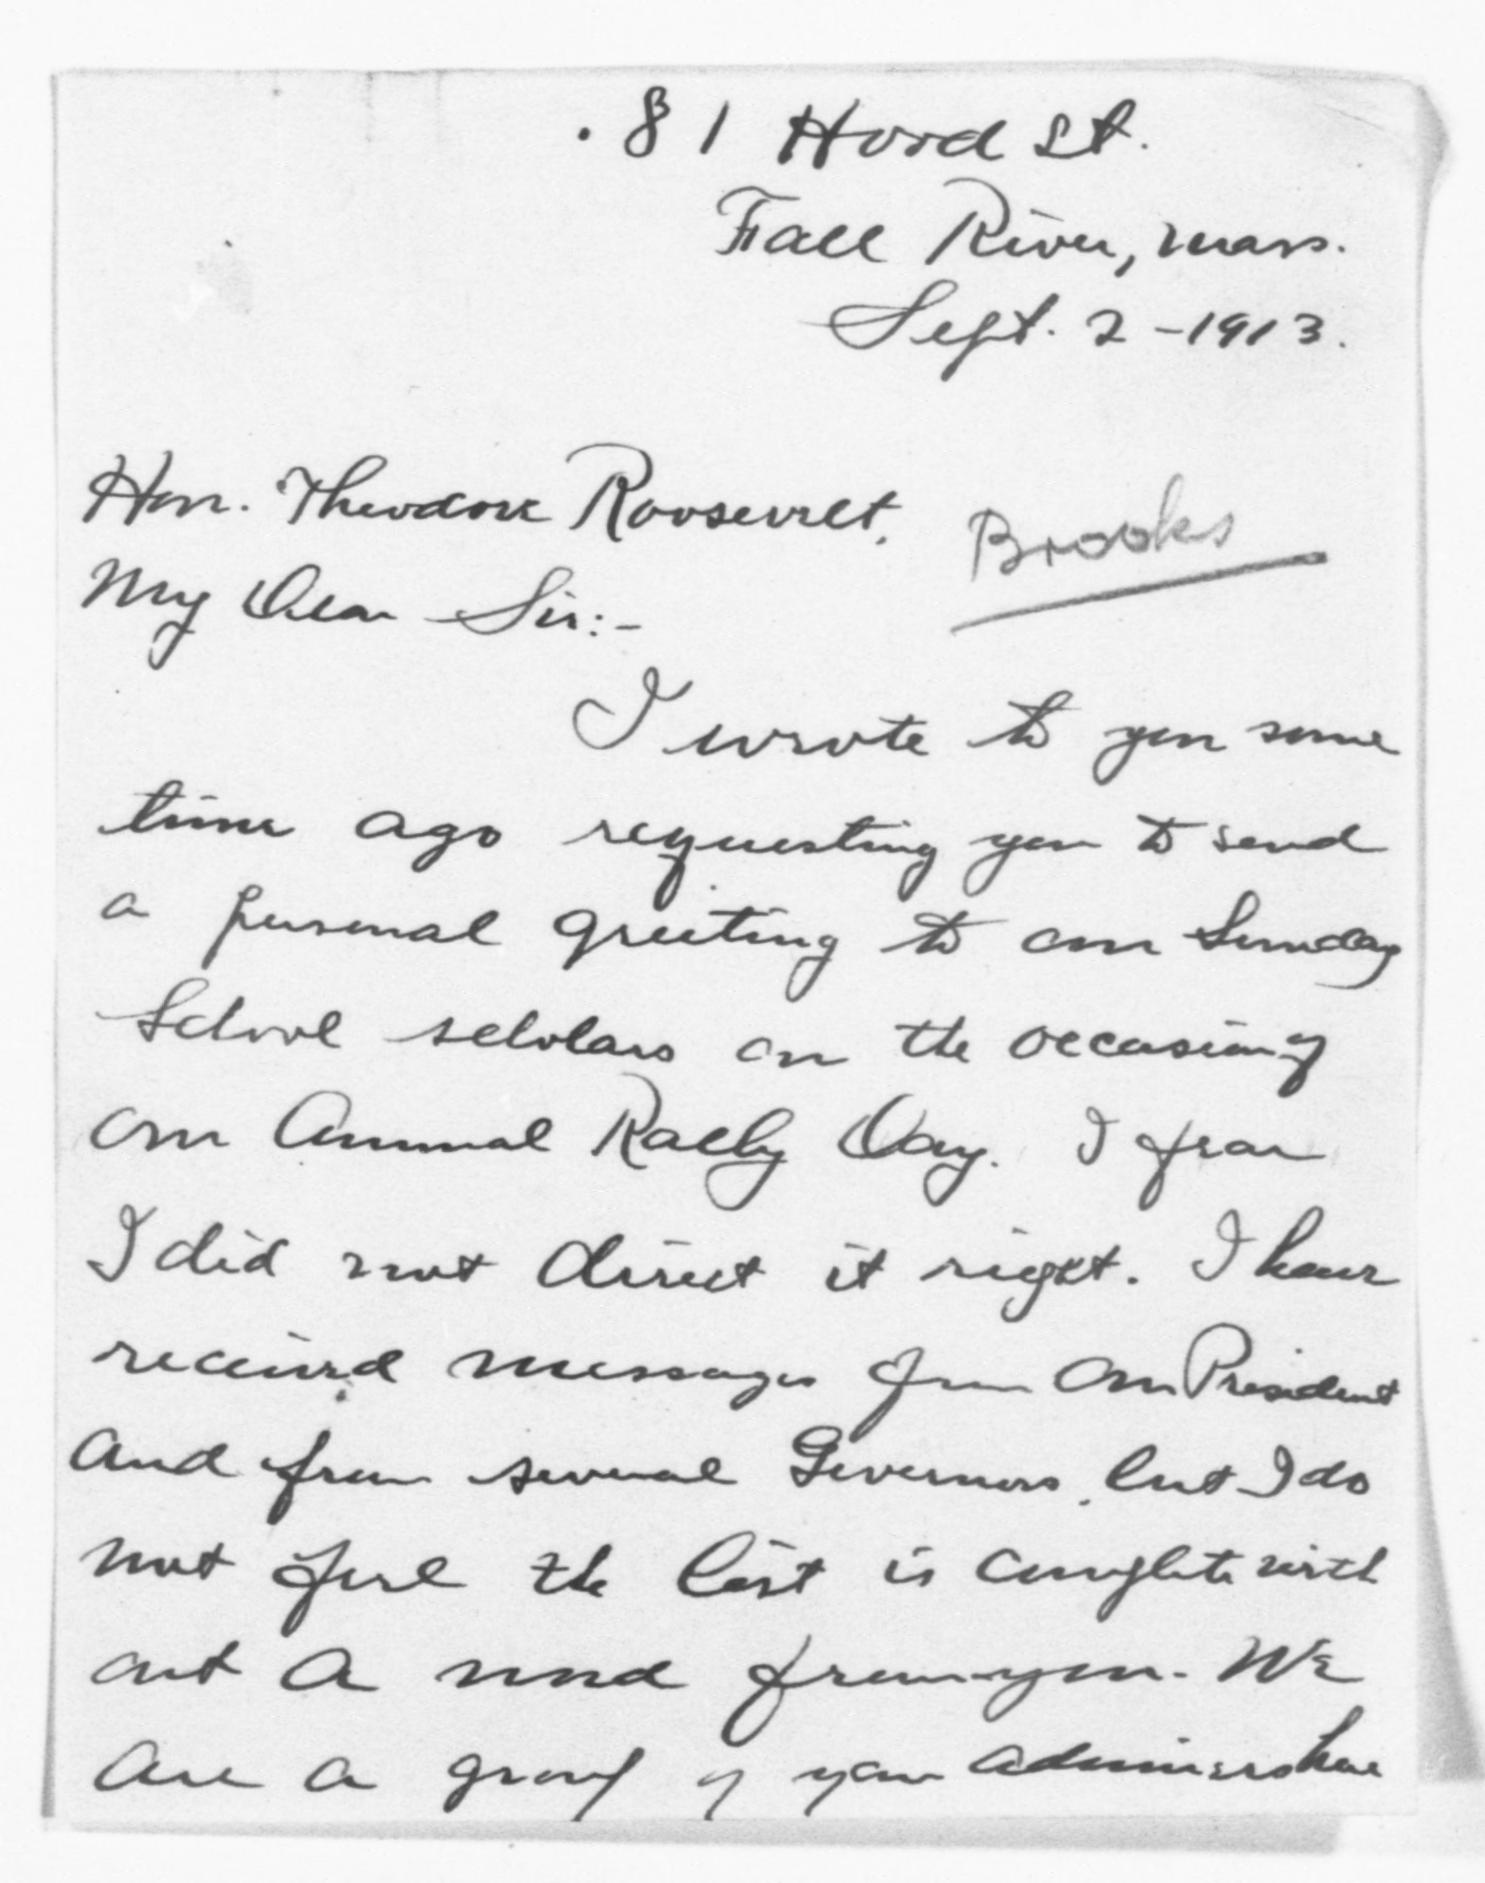 81 Hood St.
Fall River, Mass.
Sept. 2 - 1913.
Hon. Theodore Roosevelt,
Brooks
My Dear Sir:-
I wrote to you some
time ago requesting you to send
a personal greeting to our Sunday
School scholars on the occasion of
our Annual Rally Day. I fear
I did not direct it right. I have
received messages from our President
and from several Governors, but I do
not feel the list is complete with
out a word from you. We
are a group of your admirers here